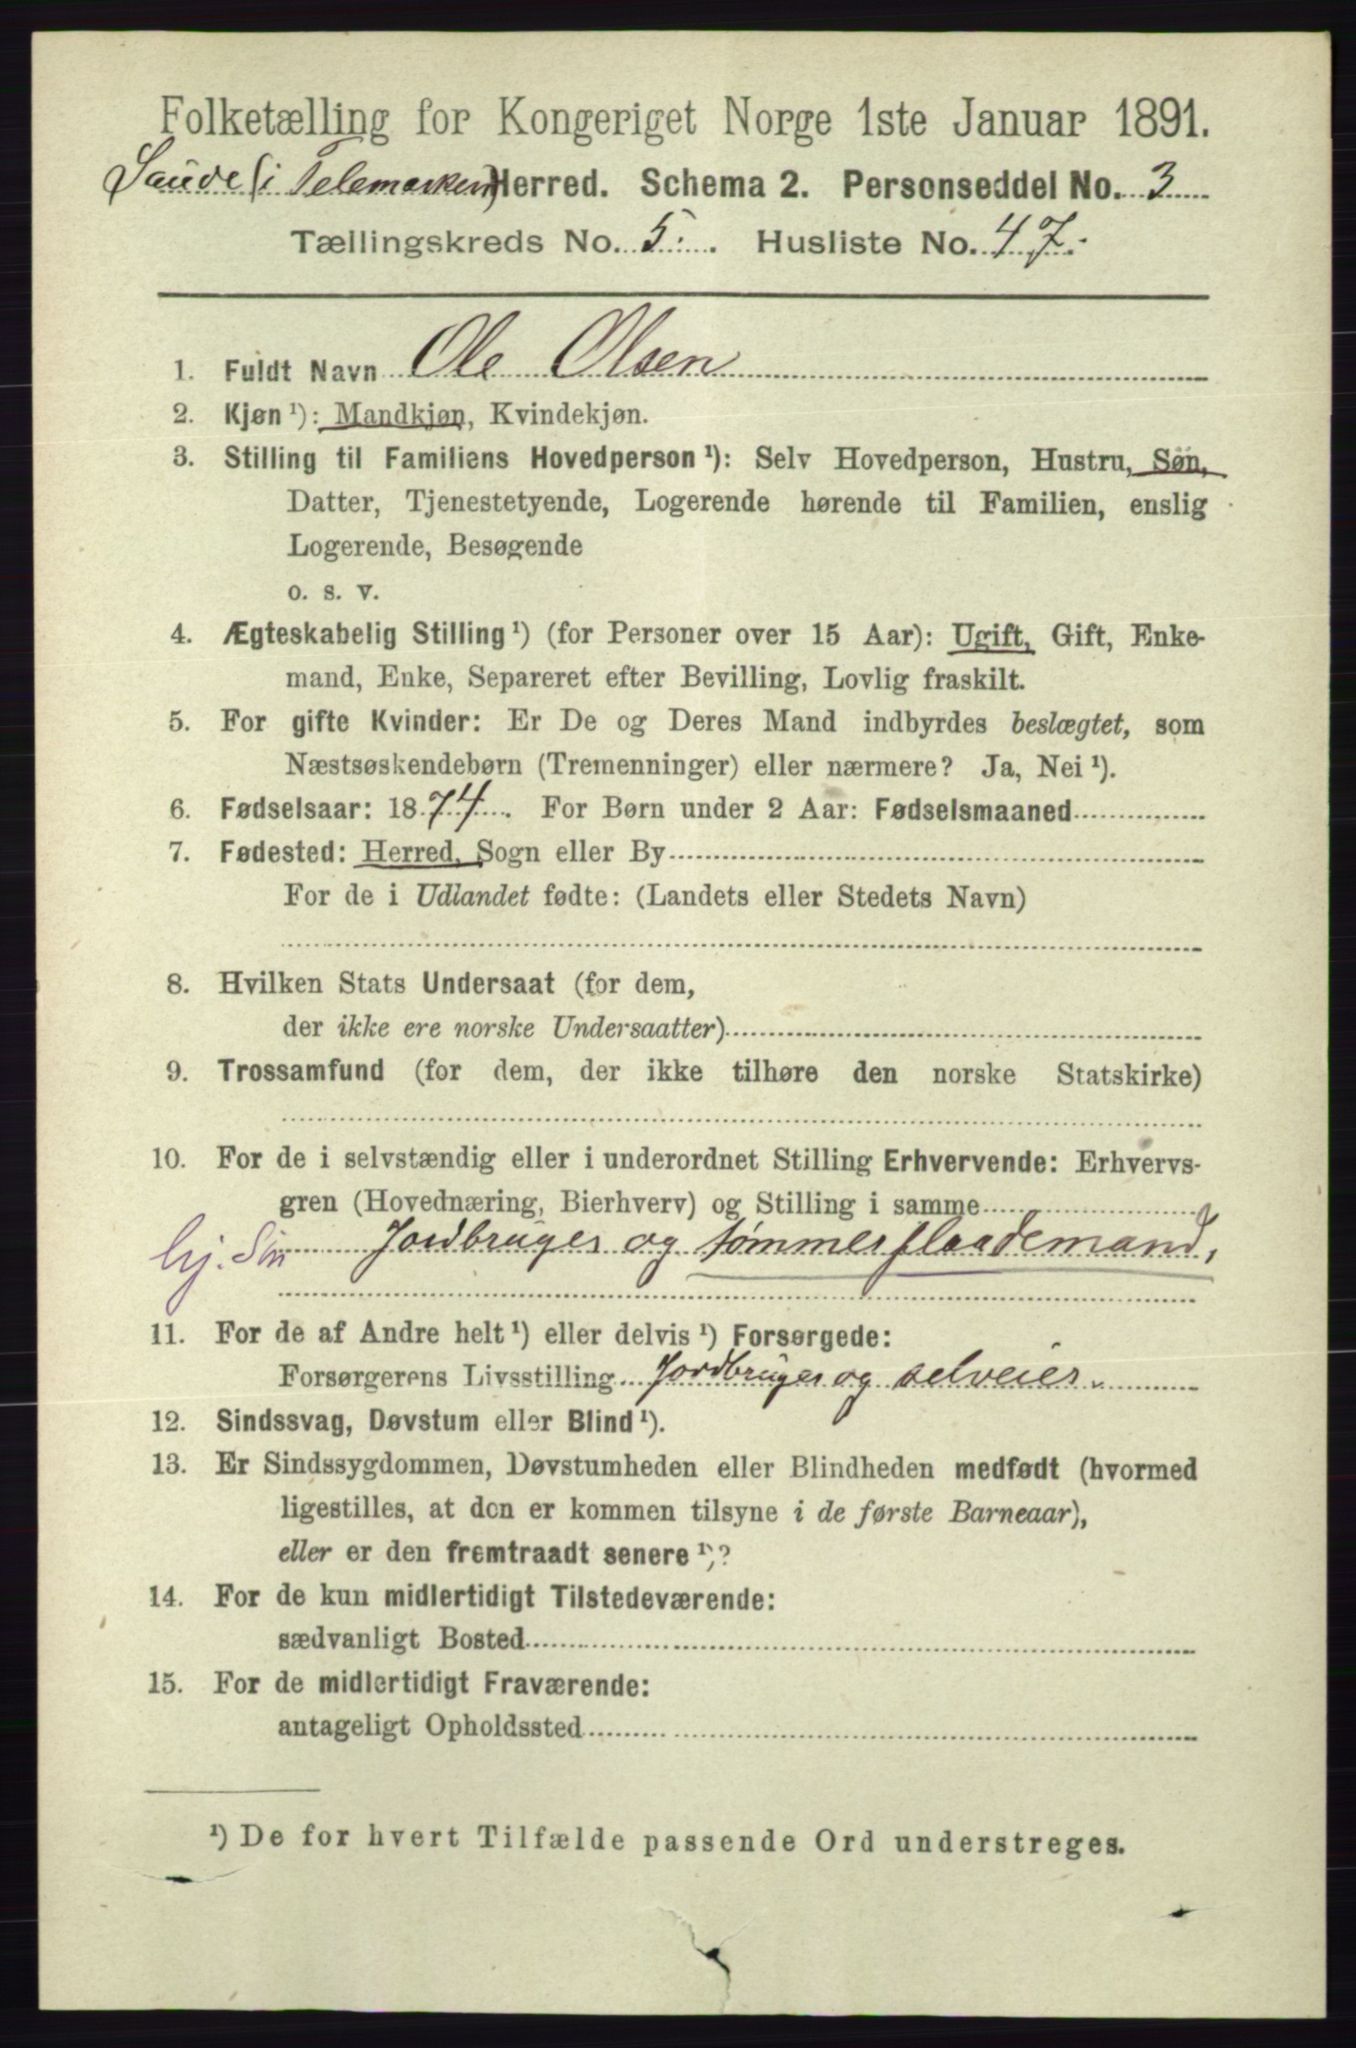 Folketælling for Kongeriget Norge 1ste Januar 1891.
Saude (i Telemarken) Herred. Schema 2. Personseddel No. 3
Tællingskreds No. 5. Husliste No. 47.
1. Fuldt Navn Ole Olsen
2. Kjøn ¹): Mandkjøn, Kvindekjøn.
3. Stilling til Familiens Hovedperson ¹): Selv Hovedperson, Hustru, Søn,
Datter, Tjenestetyende, Logerende hørende til Familien, enslig
Logerende, Besøgende
o. s. v.
4. Ægteskabelig Stilling ¹) (for Personer over 15 Aar): Ugift, Gift, Enke-
mand, Enke, Separeret efter Bevilling, Lovlig fraskilt.
5. For gifte Kvinder: Er De og Deres Mand indbyrdes beslægtet, som
Næstsøskendebørn (Tremenninger) eller nærmere? Ja, Nei ¹).
6. Fødselsaar: 1874. For Børn under 2 Aar: Fødselsmaaned
7. Fødested: Herred, Sogn eller By
For de i Udlandet fødte: (Landets eller Stedets Navn)
8. Hvilken Stats Undersaat (for dem,
der ikke ere norske Undersaatter)
9. Trossamfund (for dem, der ikke tilhøre den norske Statskirke)
10. For de i selvstændig eller i underordnet Stilling Erhvervende: Erhvervs-
gren (Hovednæring, Bierhverv) og Stilling i samme
hj. Søn Jordbruger og tømmerflaademand,
11. For de af Andre helt ¹) eller delvis ¹) Forsørgede:
Forsørgerens Livsstilling Jordbruger og selveier.
12. Sindssvag, Døvstum eller Blind ¹).
13. Er Sindssygdommen, Døvstumheden eller Blindheden medfødt (hvormed
ligestilles, at den er kommen tilsyne i de første Barneaar),
eller er den fremtraadt senere ¹)?
14. For de kun midlertidigt Tilstedeværende:
sædvanligt Bosted
15. For de midlertidigt Fraværende:
antageligt Opholdssted
¹) De for hvert Tilfælde passende Ord understreges.